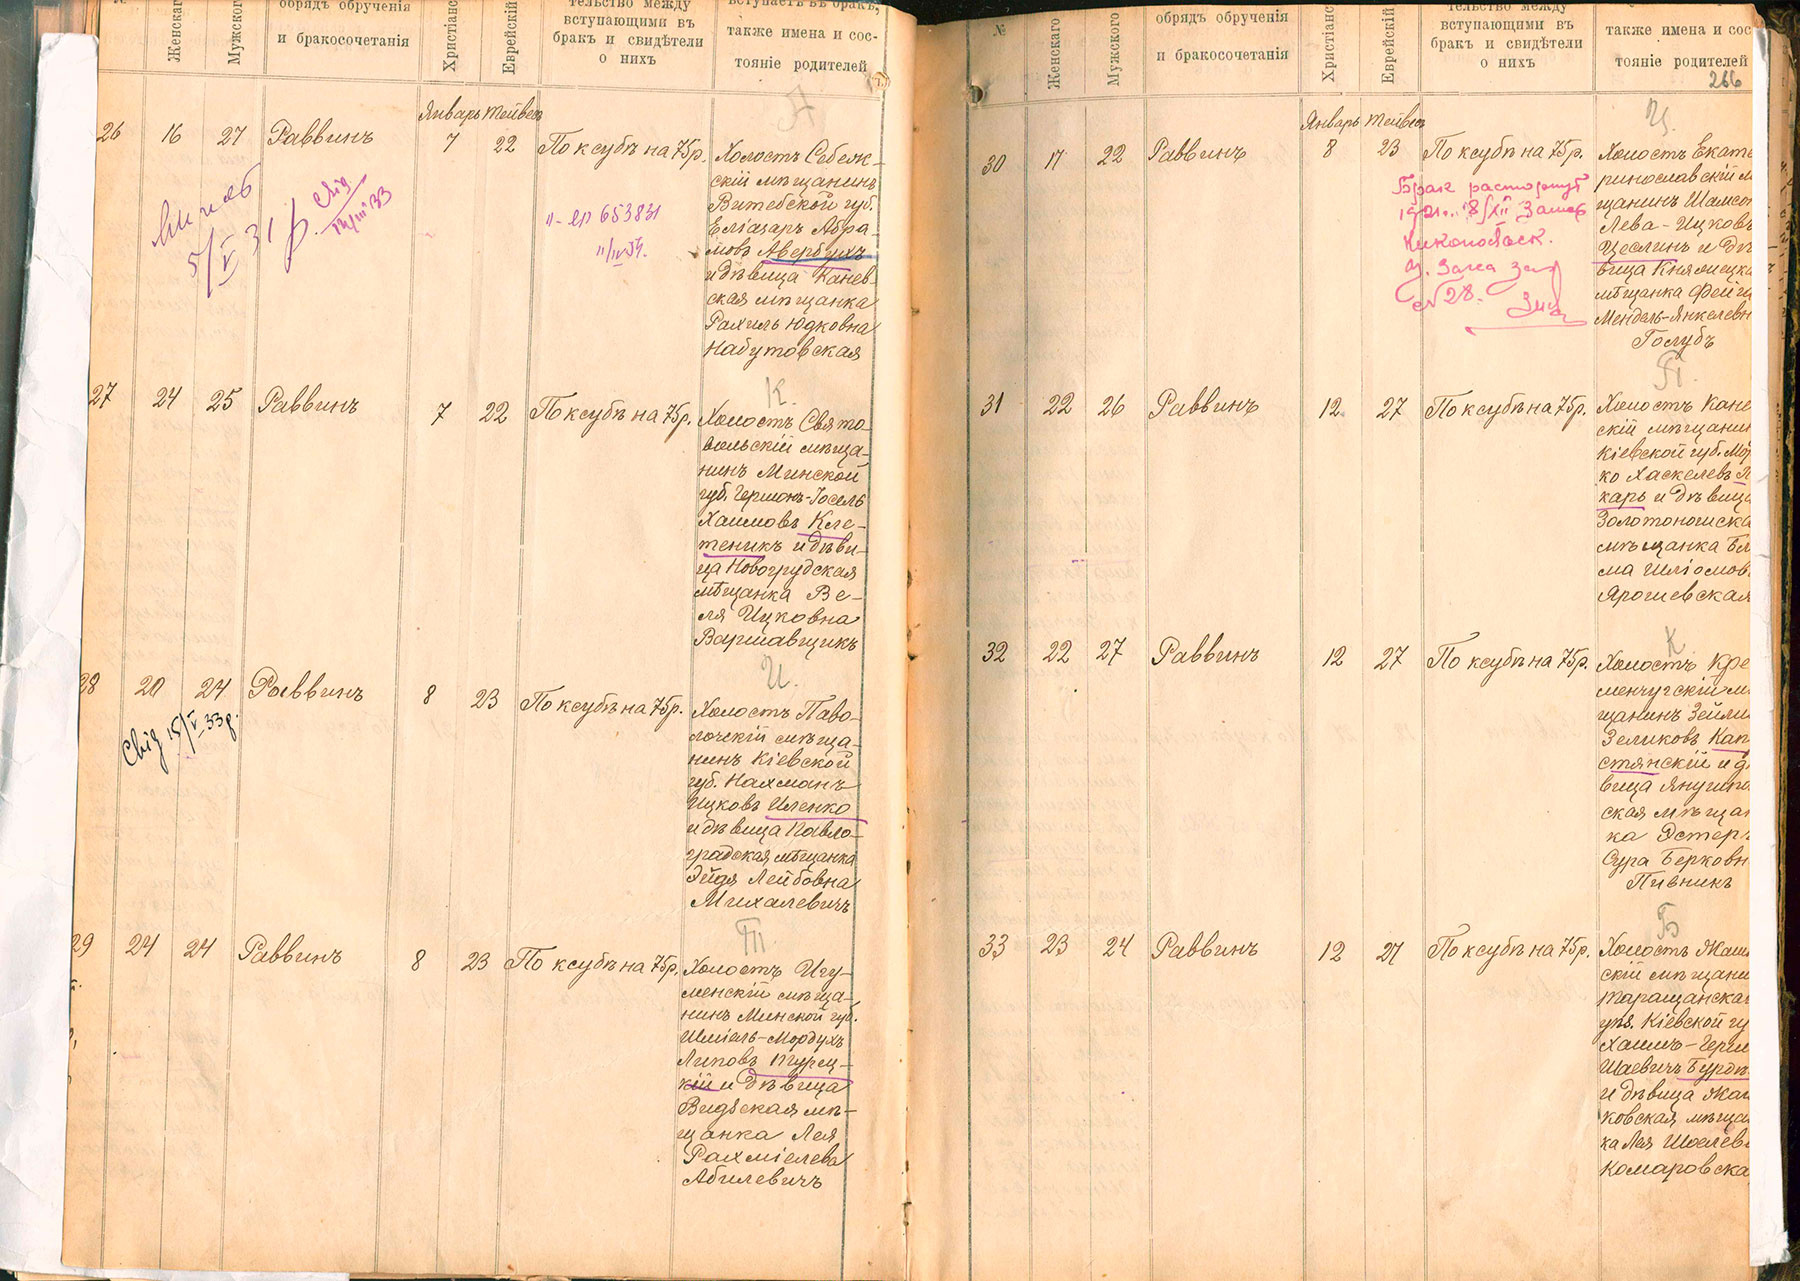 №
Женскаго
Мужского
обрядъ обрученія
и бракосочетанія
Христіанскій
Еврейскій
тельство между
вступающими въ
бракъ и свидѣтели
о нихъ
вступаетъ въ бракъ,
также имена и сос-
тояніе родителей
Январь Тейвеѳ
26 16 27 Раввинъ 7 22 По ксубѣ на 75р.
А
Холостъ Себеж-
скій мѣщанинъ
Витебской губ.
Еліазаръ Абра-
мовъ Авербухъ
и дѣвица Канев-
ская мѣщанка
Рахиль Юдковна
Набутовская
5/V 31 р.
Свід
33
653831
27 24 25 Раввинъ 7 22 По ксубѣ на 75р.
К.
Холостъ Свято-
вольскій мѣща-
нинъ Минской
губ. Гершонъ-Іосель
Хаимовъ Кле-
теникъ и дѣви-
ца Новогрудская
мѣщанка Ве-
ля Ицковна
Варшавщикъ
28 20 24 Раввинъ 8 23 По ксубѣ на 75р.
И.
Холостъ Паво-
лочскій мѣща-
нинъ Кіевской
губ. Нахманъ
Ицковъ Иленко
и дѣвица Павло-
градская мѣщанка
Эйдя Лейбовна
Михалевичъ
Свід 15/V 33р.
29 24 24 Раввинъ 8 23 По ксубѣ на 75р.
Холостъ Игу-
менскій мѣща-
нинъ Минской губ.
Шміель-Мордухъ
Липовъ Турец-
кій и дѣвица
Видзская мѣ-
щанка Лея
Рахміелева
Абилевичъ
№
Женскаго
Мужского
обрядъ обрученія
и бракосочетанія
Христіанскій
Еврейскій
тельство между
вступающими въ
бракъ и свидѣтели
о нихъ
также имена и сос
тояніе родителей
266
Январь Тейвеѳ
30 17 22 Раввинъ 8 23 По ксубѣ на 75р.
Ц.
Холостъ Екате
ринославскій м
щанинъ Шамсо
Лева-Ицковъ
Цеслинъ и дѣ
вица Княжецка
мѣщанка Фейга
Мендель-Янкелевн
Голубъ
Брак расторгнут
1921 18/XII
Никопольск.
№ 28.
31 22 26 Раввинъ 12 27 По ксубѣ на 75р.
П.
Холостъ Кане
скій мѣщанин
Кіевской губ. Мор
ко Хаскелевъ П
карь и дѣвица
Золотоношска
мѣщанка Бл
ма Шліомов
Ярошевская
32 22 27 Раввинъ 12 27 По ксубѣ на 75р.
К
Холостъ Кре
менчугскій м
щанинъ Зейли
Зеликовъ Кап
стянскій и д
вица Янушпо
ская мѣщан
ка Эстеръ
Сура Берковн
Пивникъ
33 23 24 Раввинъ 12 27 По ксубѣ на 75р.
Б
Холостъ Жаш
скій мѣщани
Таращанска
уѣз. Кіевской гу
Хаимъ-Герш
Шаевичъ Бурд
и дѣвица Жаш
ковская мѣща
ка Лея Шоелев
Комаровска